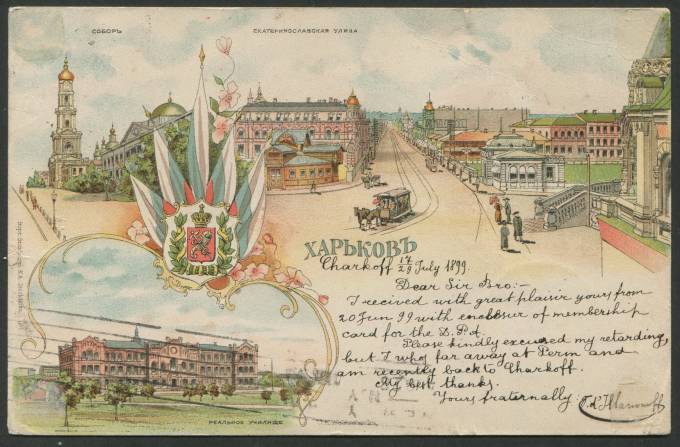 СОБОРЪ
ЕКАТЕРИНОСЛАВСКАЯ УЛИЦА
ХАРЬКОВЪ
Charkoff 17/29 July 1899.
Dear Sir Bro:-
I recived with great plaisir yours from
20 Jun 99 with encloser of membership
card for the D.P.A.
Please kindly excused my retarding,
but I whos far away at Perm and
am recently back to Charkoff.
My best thanks.
Yours fraternally:
РЕАЛЬНОЕ УЧИЛИЩЕ